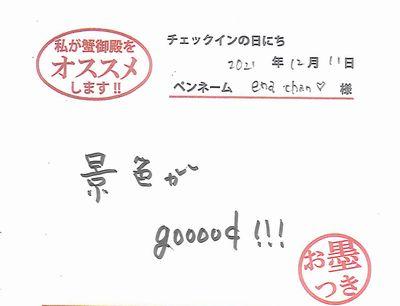 私が蟹御殿を
オススメ
します!!
チェックインの日にち
2021 年 12月 11日
ペンネーム ena chan♡ 様
景色が
gooood!!!
お墨
つき